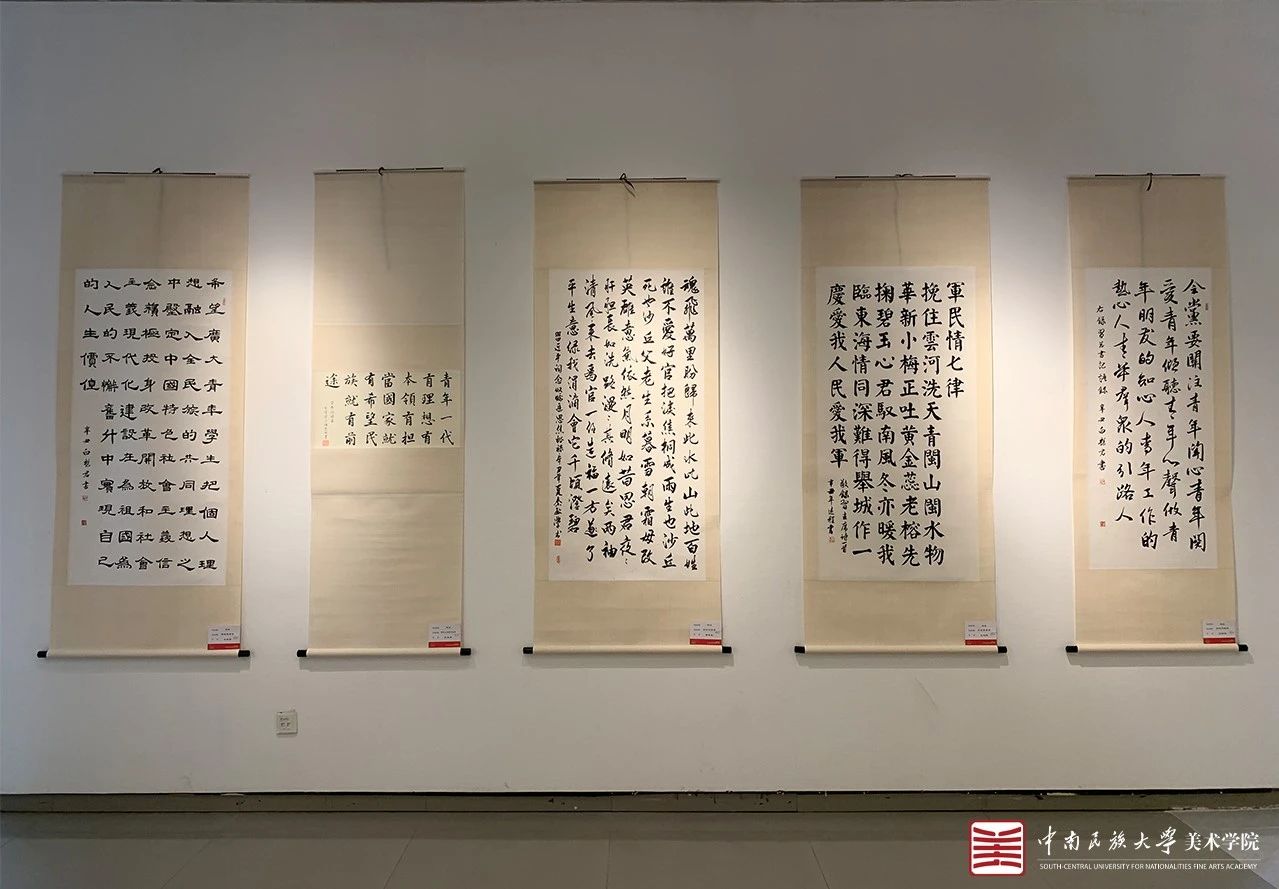 希望廣大青年學生把個人理
想融入全民族的共同理想之
中堅定中國特色社會主義信
念積極投身改革開放和社會
主義現代化建設在為祖國為
人民的不懈奮斗中實現自己
的人生價值
青年一代
有理想有
本領有担
當國家就
有希望民
族就有前
途
魂飛萬里盼歸來此水此山此地百姓
誰不愛好官把淚焦桐成雨生也沙丘
死也沙丘父老生死系暮雪朝霜毋改
英雄意氣依然月明如昔思君夜夜
肝胆長如洗路漫漫其脩遠矣兩袖
清風來去為官一任造福一方遂了
平生意綠我涓滴會它千頃澄碧
軍民情七律
挽住雲河洗天青閩山閩水物
華新小梅正吐黄金蕊老榕先
掬碧玉心君馭南風冬亦暖我
臨東海情同深難得舉城作一
慶愛我人民愛我軍
敬録習主席詩一首
全黨要関注青年関心青年関
愛青年倾聽青年心聲做青
年朋友的知心人青年工作的
熱心人青年群衆的引路人
中南民族大學美术学院
SOUTH-CENTRAL UNIVERSITY FOR NATIONALITIES FINE ARTS ACADEMY